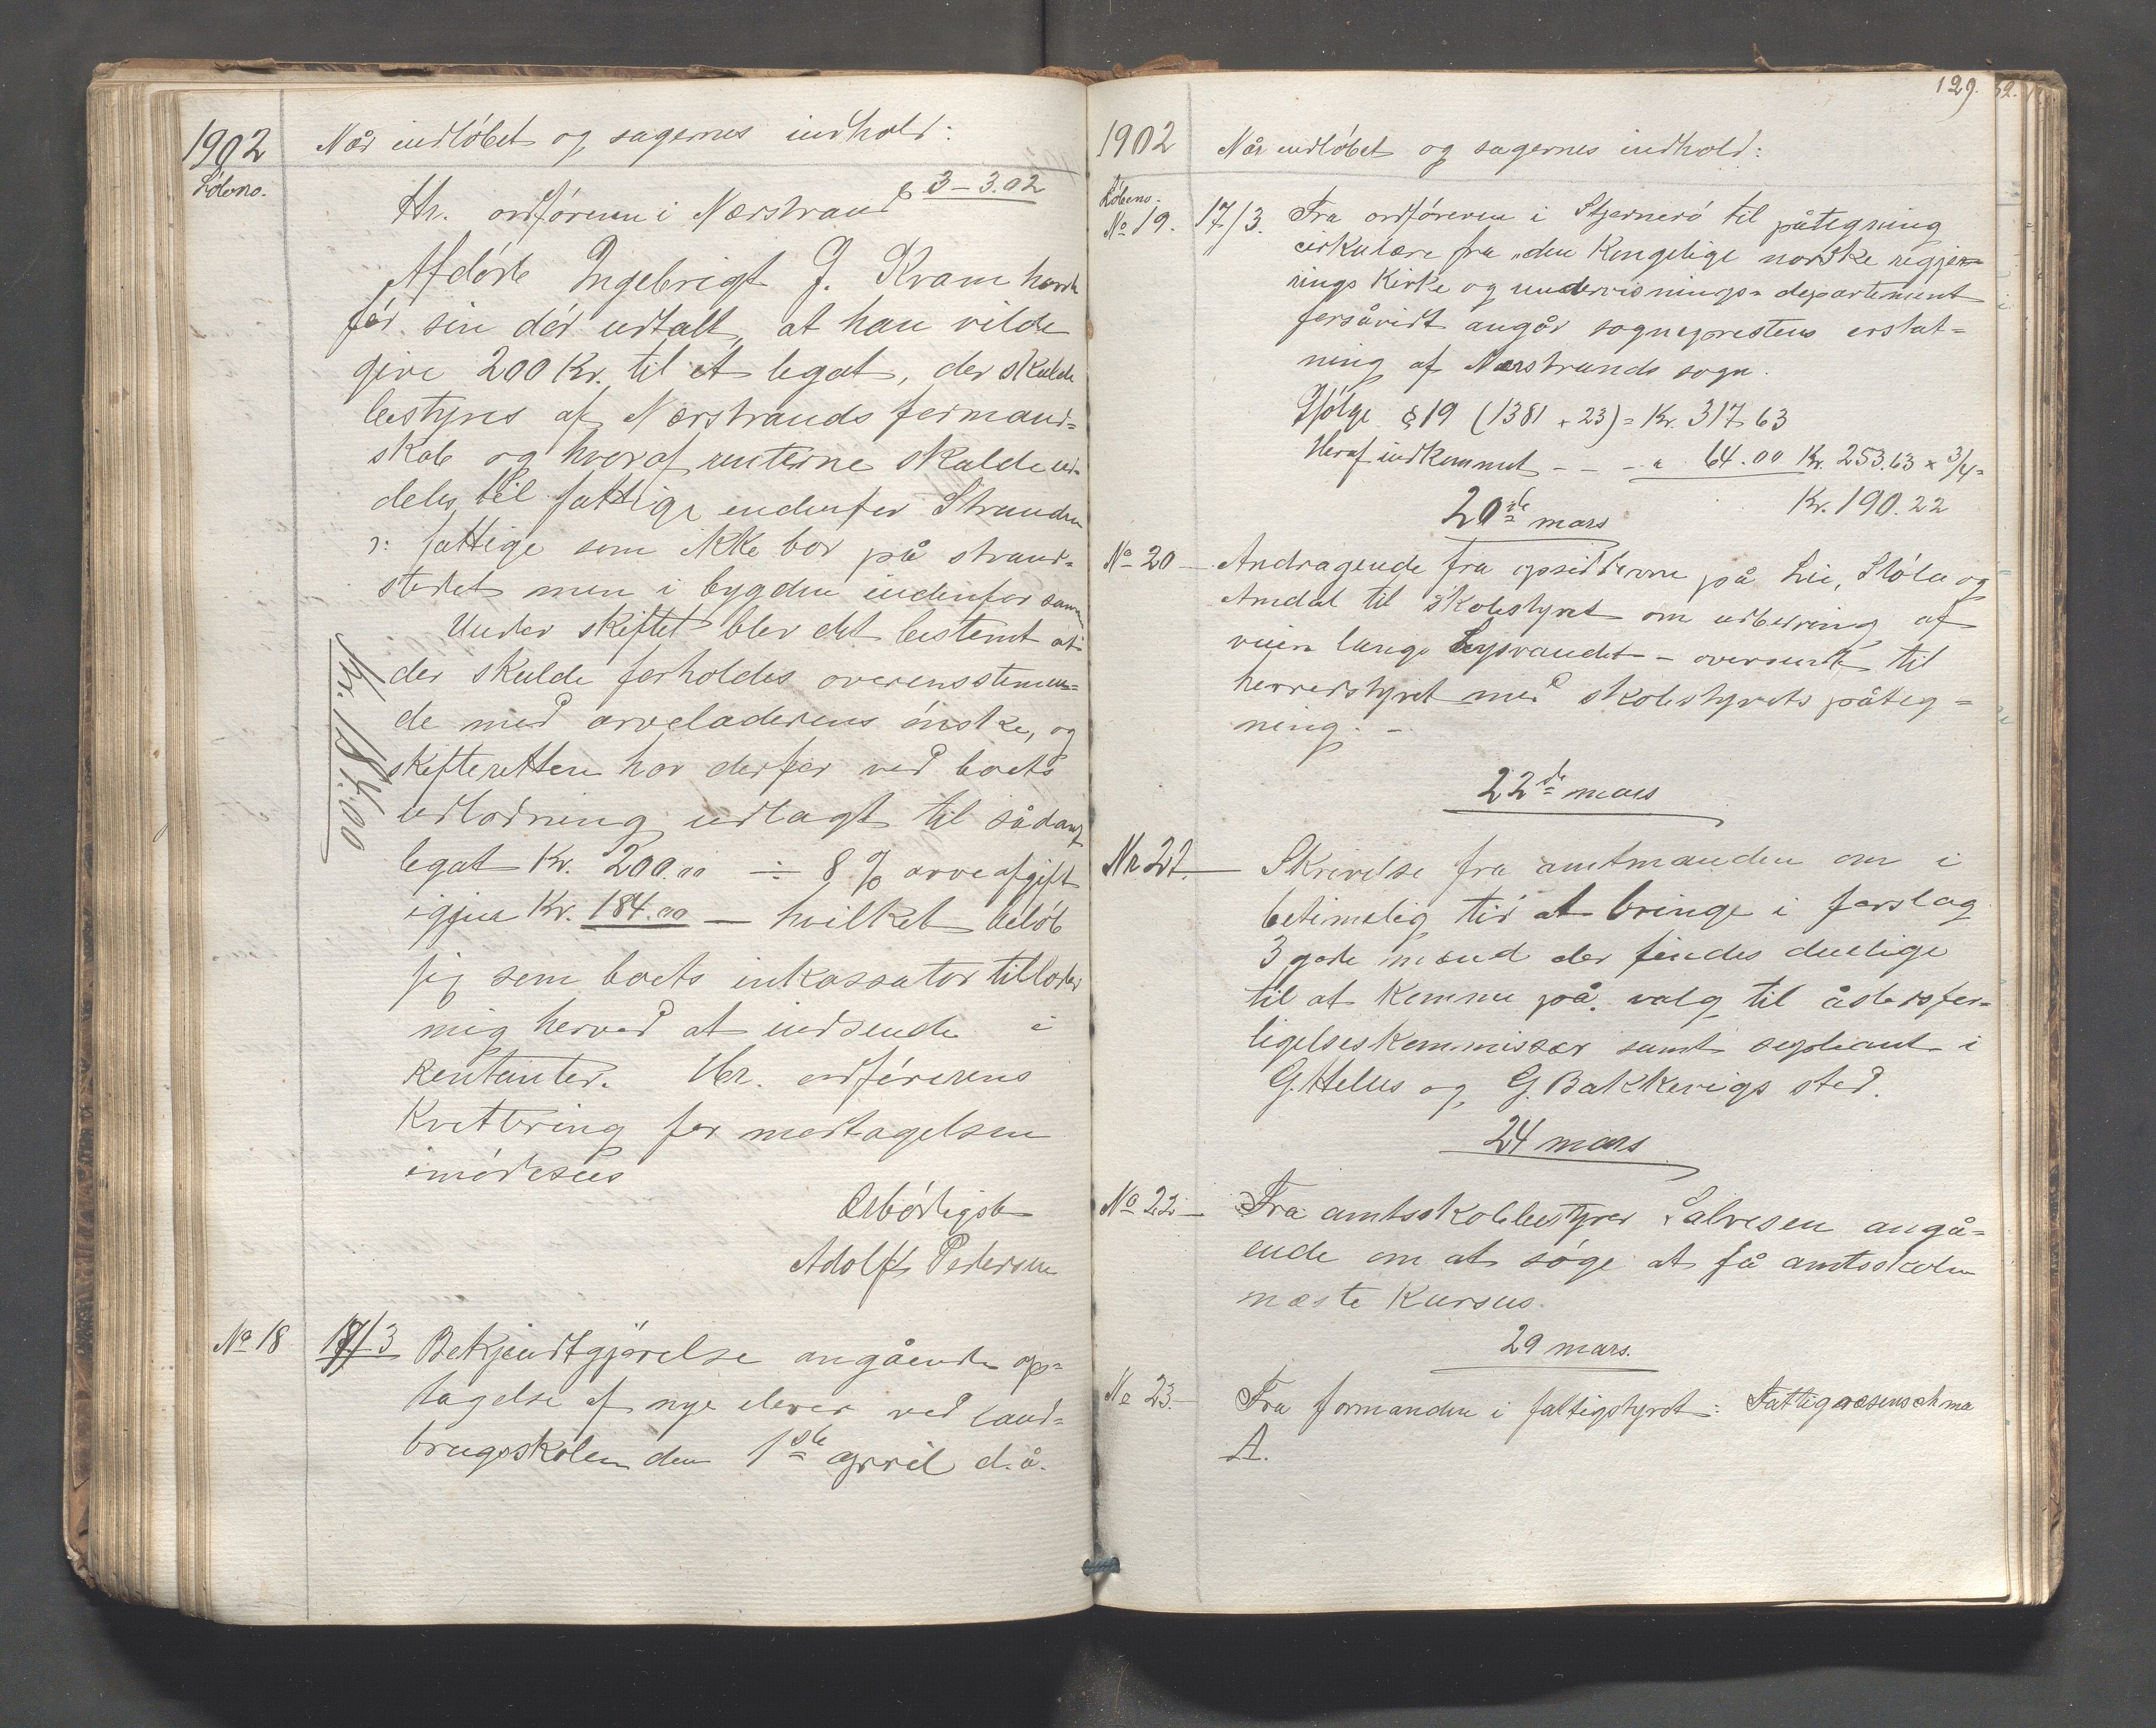 1902
Når indløbet og sagernes indhold:
Løbeno.
Hr. ordføreren i Nærstrand 3-3.02
Afdøde Ingebrigt J. Kvam havde
før sin død udtalt, at han vilde
give 200 Kr. til et legat, der skulde
bestyres af Nærstrands formand=
skab og hvoraf renterne skulde ud=
deles til fattige indenfor Stranden
ɔ: fattige som ikke bor på strand=
stedet men i bygden indenfor samme
Under skiftet blev det bestemt at
der skulde forholdes overensstemmen=
de med arveladerens ønske, og
skifteretten har derfor ved boets
udlodning udlagt til sådant
legat Kr. 200.00 ÷ 8 % arveafgift
igjen Kr. 184.00 — hvilket beløb
jeg som boets inkassator tillader
mig herved at indsende i
kontanter. Hr. ordførerens
Kvittering for modtagelsen
imødesees
Ærbødigst
Adolf Pedersen
Kr. 184.00
No 18 17/3 Bekjendtgjørelse angående op=
tagelse af nye elever ved land=
brugsskolen den 1ste april d.å.
129.
1902
Når indløbet og sagernes indhold:
Løbeno.
No 19. 17/3. Fra ordføreren i Stjernerø til påtegning
cirkulære fra "den Kongelige norske regjer=
ings Kirke og undervisnings= departement
forsåvidt angår sogneprestens erstat=
ning af Nærstrands sogn.
Ifølge § 19 (1381 + 23) = Kr. 317,63
Heraf indkommet - - - " 64.00 Kr. 253.63 x 3/4=
Kr. 190.22
20de mars
No 20 — Andragende fra opsidderne på Lie, Støle og
Amdal til skolestyret om udbedring af
veien langs Løysvandet - oversendt til
herredstyret med skolestyrets påteg=
ning. -
22de mars
Nr 21. — Skrivelse fra amtmanden om i
betimelig tid at bringe i forslag
3 gode mænd der findes duelige
til at komme på valg til åstedsfor=
ligelseskommissær samt suppleant i
G. Helles og G. Bakkevigs sted.
24 mars
No 22 — Fra amtsskolebestyrer Salvesen angå=
ende om at søge at få amtsskolen
næste Kursus.
29 mars.
No 23. — Fra formanden i fattigstyret: Fattigvæsenschema
A.